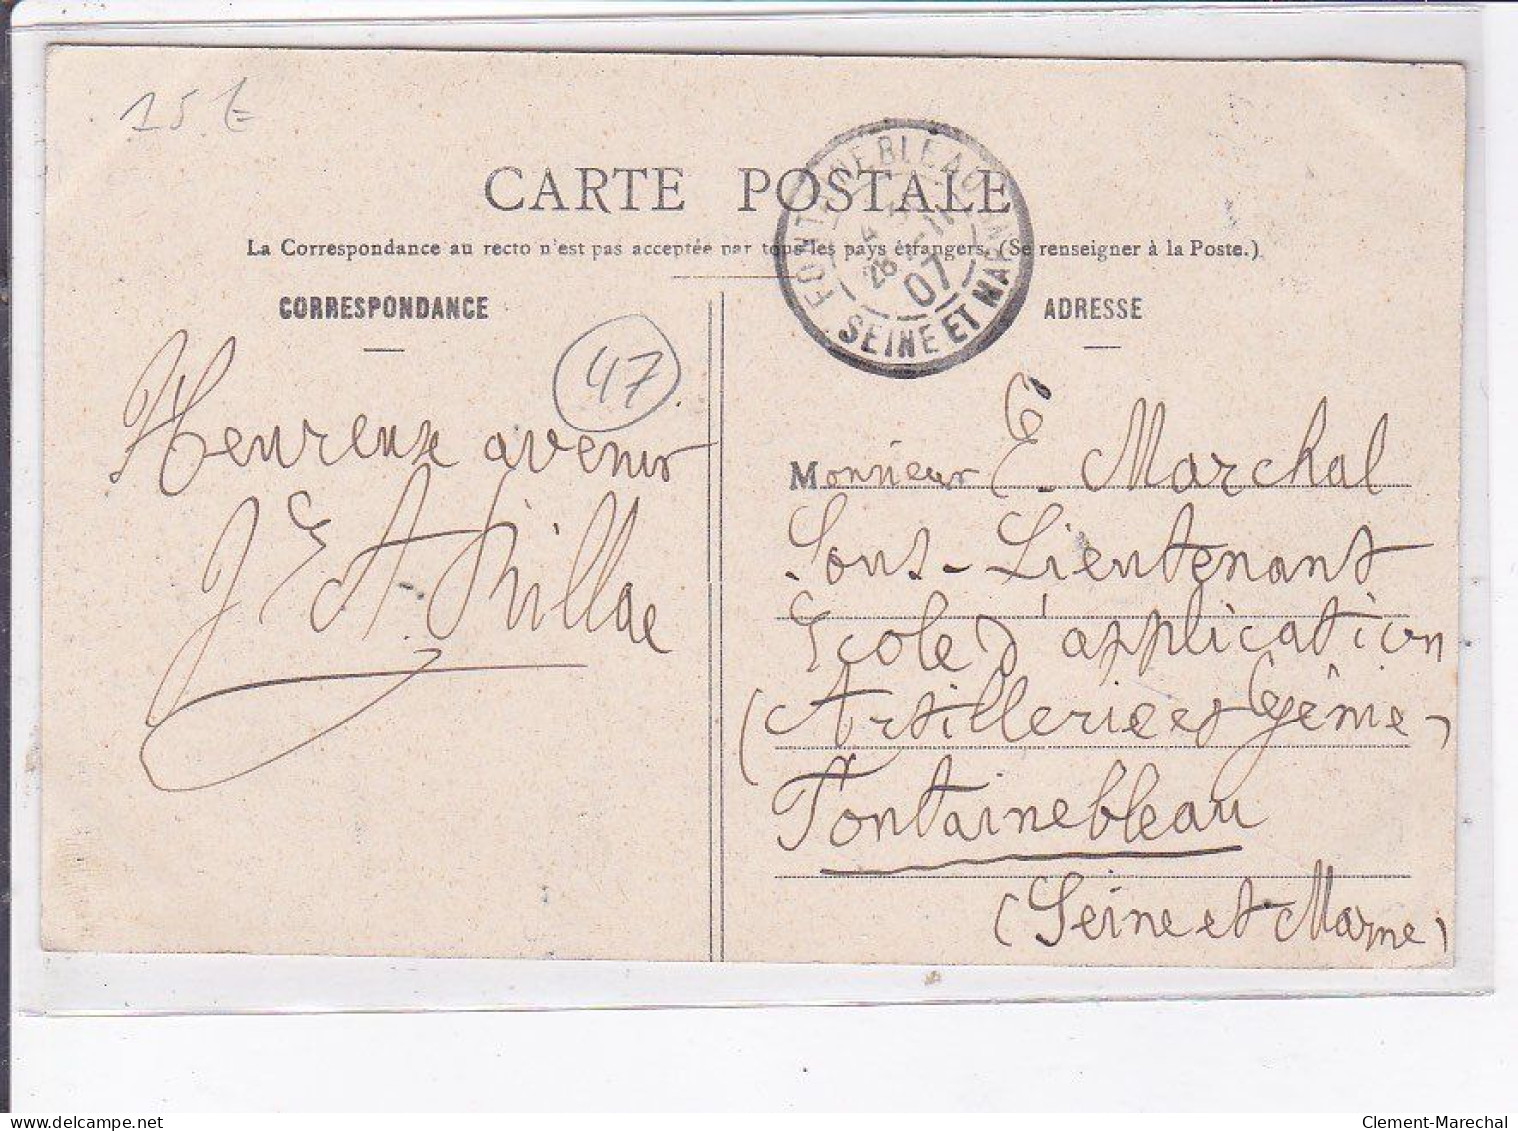 15 €
CARTE POSTALE
La Correspondance au recto n'est pas acceptée par tous les pays étrangers. (Se renseigner à la Poste.)
FONTAINEBLEAU
28 -11
07
SEINE ET MARNE
CORRESPONDANCE
47
Heureux avenir
ADRESSE
Monsieur E. Marchal
Sous-Lieutenant
Ecole d'application
(Artillerie et Génie)
Fontainebleau
(Seine et Marne)
delcampe.net
Clement-Marechal